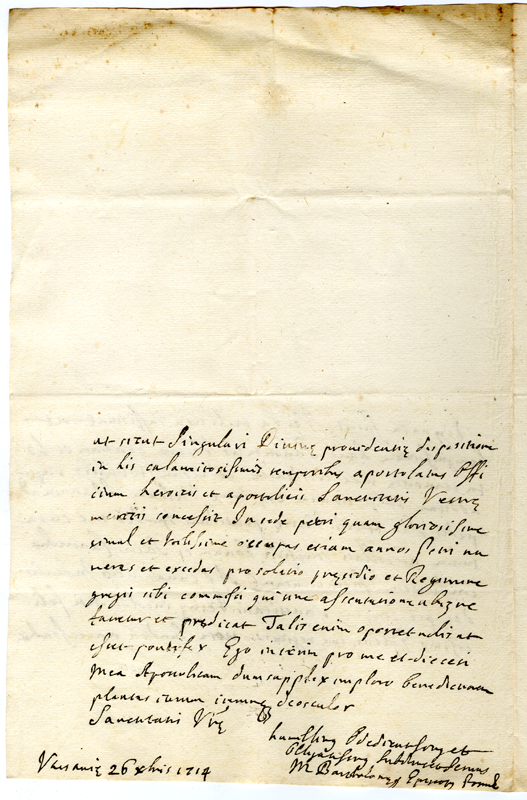 ut sicut singulari Divinę providentię dispositione
in his calamitosissimis temporibus apostolatus offi
cium heroicis et apostolicis Sanctitatis Vestrę
meritis concessit in sede petri quam gloriosissime
simul et utilissime occupas etiam annos petri nu
meres et excedas pro solatio pręsidio et Regimine
gregis sibi commissi qui une assentatione ubique
fatetur et prędicat Talis enim oportet nobis ut
esset pontifex Ego interim pro me et diecesi
mea Apostolicam dum supplex imploro benedictionem
plantas cum deosculor
Sanctitatis Vrę
humillimus et
Servus
M Bartholomeus Episcopus
Varsavię 26 xbris 1714